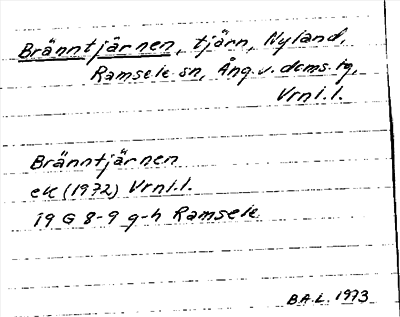 Bränntjärnen, tjärn, Nyland,
Ramsele sn, Ång. v. dcms. tg,
Vrnl.l.
Bränntjärnen
ek (1972) Vrnl.l.
19 G 8-9 g-h Ramsele
B.A.L. 1973